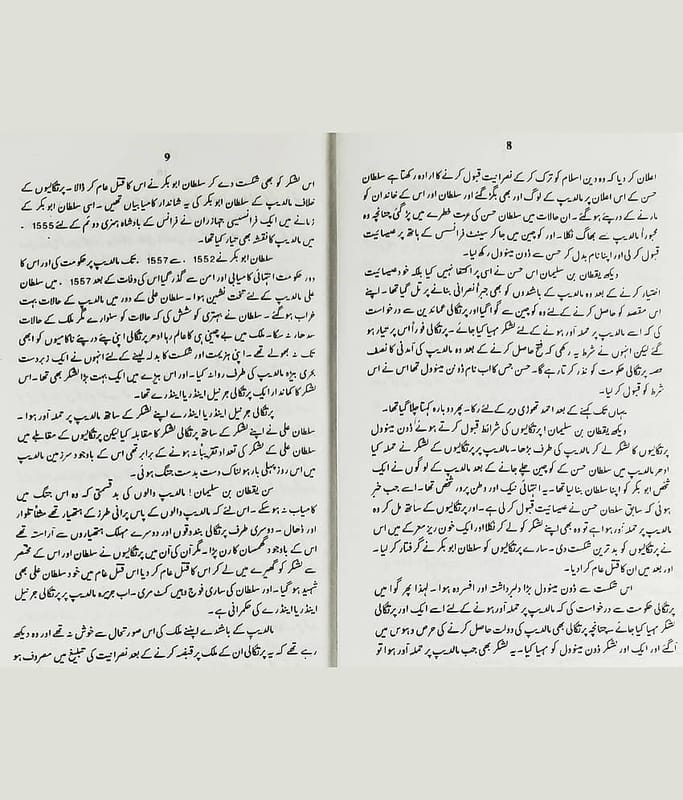 8
اعلان کر دیا کہ وہ دین اسلام کو ترک کر کے نصرانیت قبول کرنے کا ارادہ رکھتا ہے سلطان
حسن کے اس اعلان پر مالدیپ کے لوگ اور بھی بگڑ گئے اور سلطان اور اس کے خاندان کو
مارنے کے درپے ہو گئے۔ ان حالات میں سلطان حسن کی عزت خطرے میں پڑ گئی چنانچہ وہ
مجبوراً مالدیپ سے بھاگ نکلا۔ اور کوچین میں جا کر سینٹ فرانسس کے ہاتھ پر عیسائیت
قبول کر لی اور اپنا نام بدل کر حسن سے ڈون مینوول رکھ لیا۔
دیکھ یقطان بن سلیمان اس حسن نے اسی پر اکتفا نہیں کیا بلکہ خود عیسائیت
اختیار کرنے کے بعد وہ مالدیپ کے باشندوں کو بھی جبراً نصرانی بنانے پر تل گیا تھا۔ اپنے
اس مقصد کو حاصل کرنے کے لئے وہ کوچین سے گوا گیا اور پرتگالی عمائدین سے درخواست
کی کہ اسے مالدیپ پر حملہ آور ہونے کے لئے لشکر مہیا کیا جائے۔ پرتگالی فوراً اس پر تیار ہو
گئے لیکن انہوں نے شرط یہ رکھی کہ فتح حاصل کرنے کے بعد وہ مالدیپ کی آمدنی کا نصف
حصہ پرتگالی حکومت کو نذر کرتا رہے گا۔ حسن جس کا اب نام ڈون مینوول تھا اس نے اس
شرط کو قبول کر لیا۔
یہاں تک کہنے کے بعد احمد تھوڑی دیر کے لئے رکا۔ پھر دوبارہ کہتا چلا گیا تھا۔
دیکھ یقطان بن سلیمان! پرتگالیوں کی شرائط قبول کرتے ہوئے ڈون مینوول
پرتگالیوں کا لشکر لے کر مالدیپ کی طرف بڑھا۔ مالدیپ پر پرتگالیوں کے لشکر نے حملہ کیا
ادھر مالدیپ میں سلطان حسن کے کوچین چلے جانے کے بعد مالدیپ کے لوگوں نے ایک
شخص ابو بکر کو اپنا سلطان بنا لیا تھا۔ یہ انتہائی نیک اور وطن پرور شخص تھا۔ اسے جب خبر
ہوئی کہ سابق سلطان حسن نے عیسائیت قبول کر لی ہے۔ اور پرتگالیوں کے ساتھ مل کر وہ
مالدیپ پر حملہ آور ہوا ہے تو وہ بھی اپنے لشکر کو لے کر نکلا اور ایک خون ریز معرکے میں اس
نے پرتگالیوں کو بدترین شکست دی۔ سارے پرتگالیوں کو سلطان ابو بکر نے گرفتار کر لیا۔
اور بعد میں ان کا قتل عام کرا دیا۔
اس شکست سے ڈون مینوول بڑا دلبرداشتہ اور افسردہ ہوا۔ لہذا پھر گوا میں
پرتگالی حکومت سے درخواست کی کہ مالدیپ پر حملہ آور ہونے کے لئے اسے ایک اور پرتگالی
لشکر مہیا کیا جائے۔ چنانچہ پرتگالی بھی مالدیپ کی دولت حاصل کرنے کی حرص و ہوس میں
آ گئے اور ایک اور لشکر ڈون مینوول کو مہیا کیا۔ یہ لشکر بھی جب مالدیپ پر حملہ آور ہوا تو
9
اس لشکر کو بھی شکست دے کر سلطان ابو بکر نے اس کا قتل عام کر ڈالا۔ پرتگالیوں کے
خلاف مالدیپ کے سلطان ابو بکر کی یہ شاندار کامیابیاں تھیں۔ اسی سلطان ابو بکر کے
زمانے میں ایک فرانسیسی جہازران نے فرانس کے بادشاہ ہنری دوئم کے لئے 1555ء
میں مالدیپ کا نقشہ بھی تیار کیا تھا۔
سلطان ابو بکر نے 1552ء سے 1557ء تک مالدیپ پر حکومت کی اور اس کا
دور حکومت انتہائی کامیابی اور امن سے گذر گیا اس کی وفات کے بعد 1557ء میں سلطان
علی مالدیپ کے لئے تخت نشین ہوا۔ سلطان علی کے دور میں مالدیپ کے حالات بہت
خراب ہو گئے۔ سلطان نے بہتری کو شش کی کہ حالات کو سنوارے مگر ملک کے حالات
سدھار نہ سکا۔ ملک میں بے چینی ہی کا عالم رہا ادھر پرتگالی اپنی پے در پے ناکامیوں کو ابھی
تک نہ بھولے تھے۔ اپنی ہزیمت اور شکست کا بدلہ لینے کے لئے انہوں نے ایک زبردست
بحری بیڑہ مالدیپ کی طرف روانہ کیا۔ اور اس بیڑے میں ایک بہت بڑا لشکر بھی تھا۔ اس
لشکر کا کماندار ایک پرتگالی جرنیل اینڈریا اینڈرے تھا۔
پرتگالی جرنیل اینڈریا اینڈرے اپنے لشکر کے ساتھ مالدیپ پر حملہ آور ہوا۔
سلطان علی نے اپنے لشکر کے ساتھ پرتگالی لشکر کا مقابلہ کیا لیکن پرتگالیوں کے مقابلے میں
سلطان علی کے لشکر کی تعداد تقریباً نہ ہونے کے برابر تھی اس کے باوجود سرزمین مالدیپ
میں اس روز پہلی بار ہولناک دست بدست جنگ ہوئی۔
سن یقطان بن سلیمان! مالدیپ والوں کی بد قسمتی کہ وہ اس جنگ میں
کامیاب نہ ہو سکے۔ اس لئے کہ مالدیپ والوں کے پاس پرانی طرز کے ہتھیار تھے مثلاً تلوار
اور ڈھال۔ دوسری طرف پرتگالی بندوقوں اور دوسرے مہلک ہتھیاروں سے آراستہ تھے
اس کے باوجود گھمسان کا رن پڑا۔ مگر آن کی آن میں پرتگالیوں نے سلطان اور اس کے مختصر
سے لشکر کو گھیرے میں لے کر اس کا قتل عام کر دیا اس قتل عام میں خود سلطان علی بھی
شہید ہو گیا۔ اور سلطان کی ساری فوج وہیں کٹ مری۔ اب جزیرہ مالدیپ پر پرتگالی جرنیل
اینڈریا اینڈرے کی حکمرانی ہے۔
مالدیپ کے باشندے اپنے ملک کی اس صورتحال سے خوش نہ تھے اور وہ دیکھ
رہے تھے کہ یہ پرتگالی ان کے ملک پر قبضہ کرنے کے بعد نصرانیت کی تبلیغ میں مصروف ہو